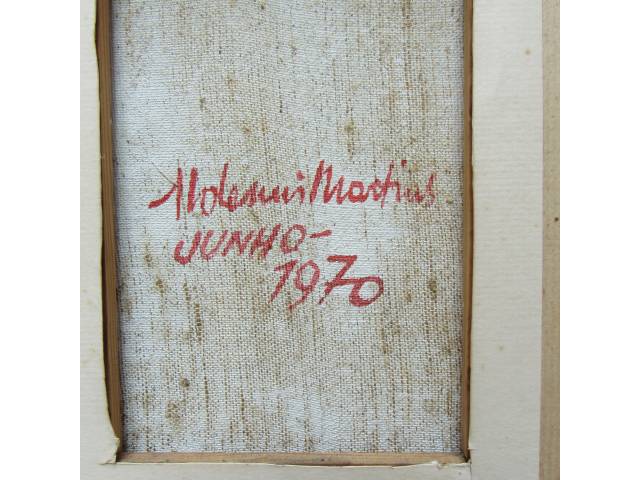 Aldemir Martins
JUNHO-
1970